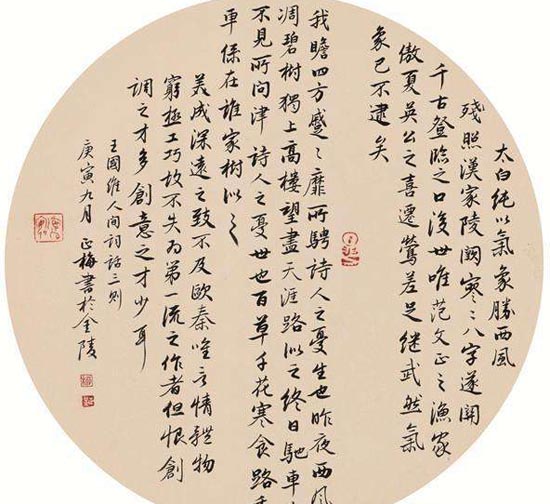 太白純以氣象勝西風
殘照漢家陵闕寥〻八字遂關
千古登臨之口後世唯范文正之漁家
傲夏英公之喜遷鶯差足繼武然氣
象已不逮矣
我瞻四方蹙〻靡所騁詩人之憂生也昨夜西風
凋碧樹獨上高樓望盡天涯路似之終日馳車
不見所問津詩人之憂世也百草千花寒食路
車係在誰家樹似之
美成深遠之致不及歐秦唯言情體物
窮極工巧故不失為第一流之作者但恨創
調之才多創意之才少耳
王國維人間詞話三則
庚寅九月正梅書於金陵